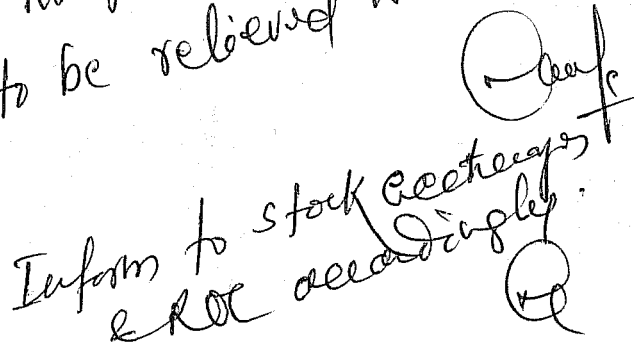 to be relieved
Inform to stock exchanges
& ROC accordingly.